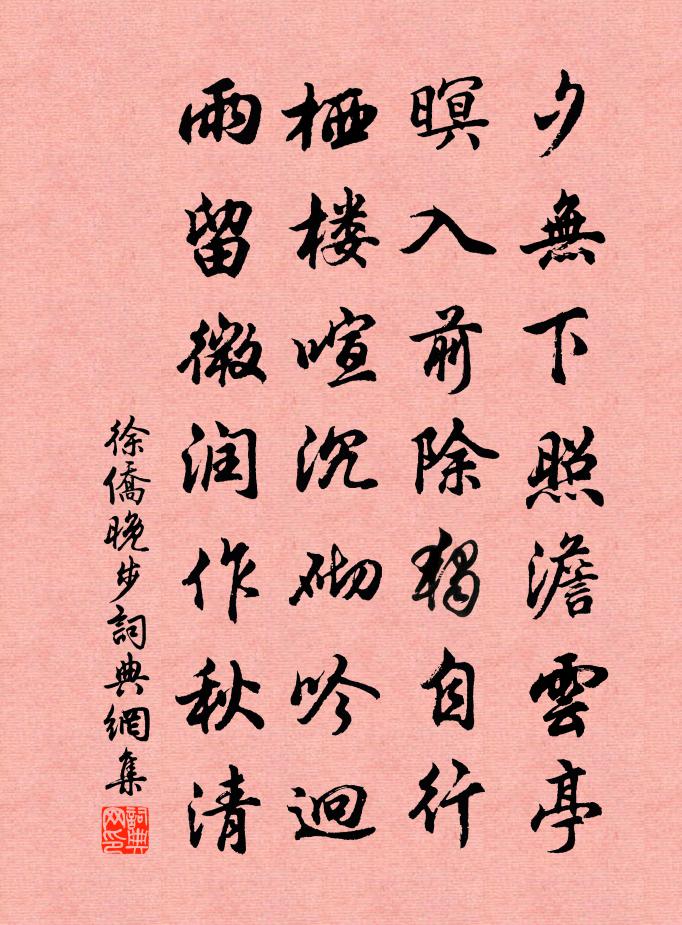 夕無下照澹雲亭
暝入前除獨自行
栖楼喧沉砌吟迴
雨留微润作秋清
徐僑晚步詞典網集
詞典网印